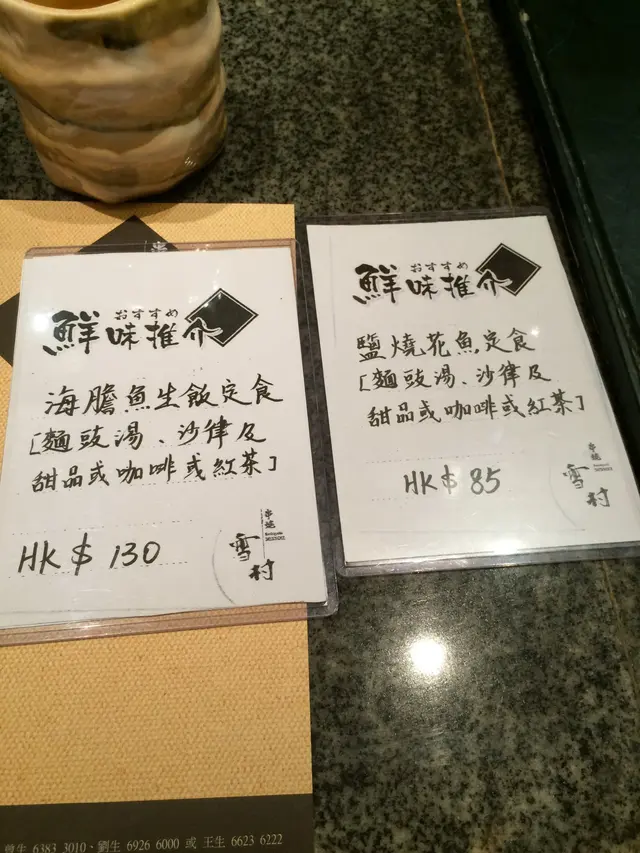 おすすめ
鮮味推介
海膽魚生飯定食
[麵豉湯、沙律及
甜品或咖啡或紅茶]
HK$ 130
串燒
雪村
おすすめ
鮮味推介
鹽燒花魚定食
[麵豉湯、沙律及
甜品或咖啡或紅茶]
HK$ 85
串燒
雪村
曾生 6383 3010、劉生 6926 6000 或 王生 6623 6222